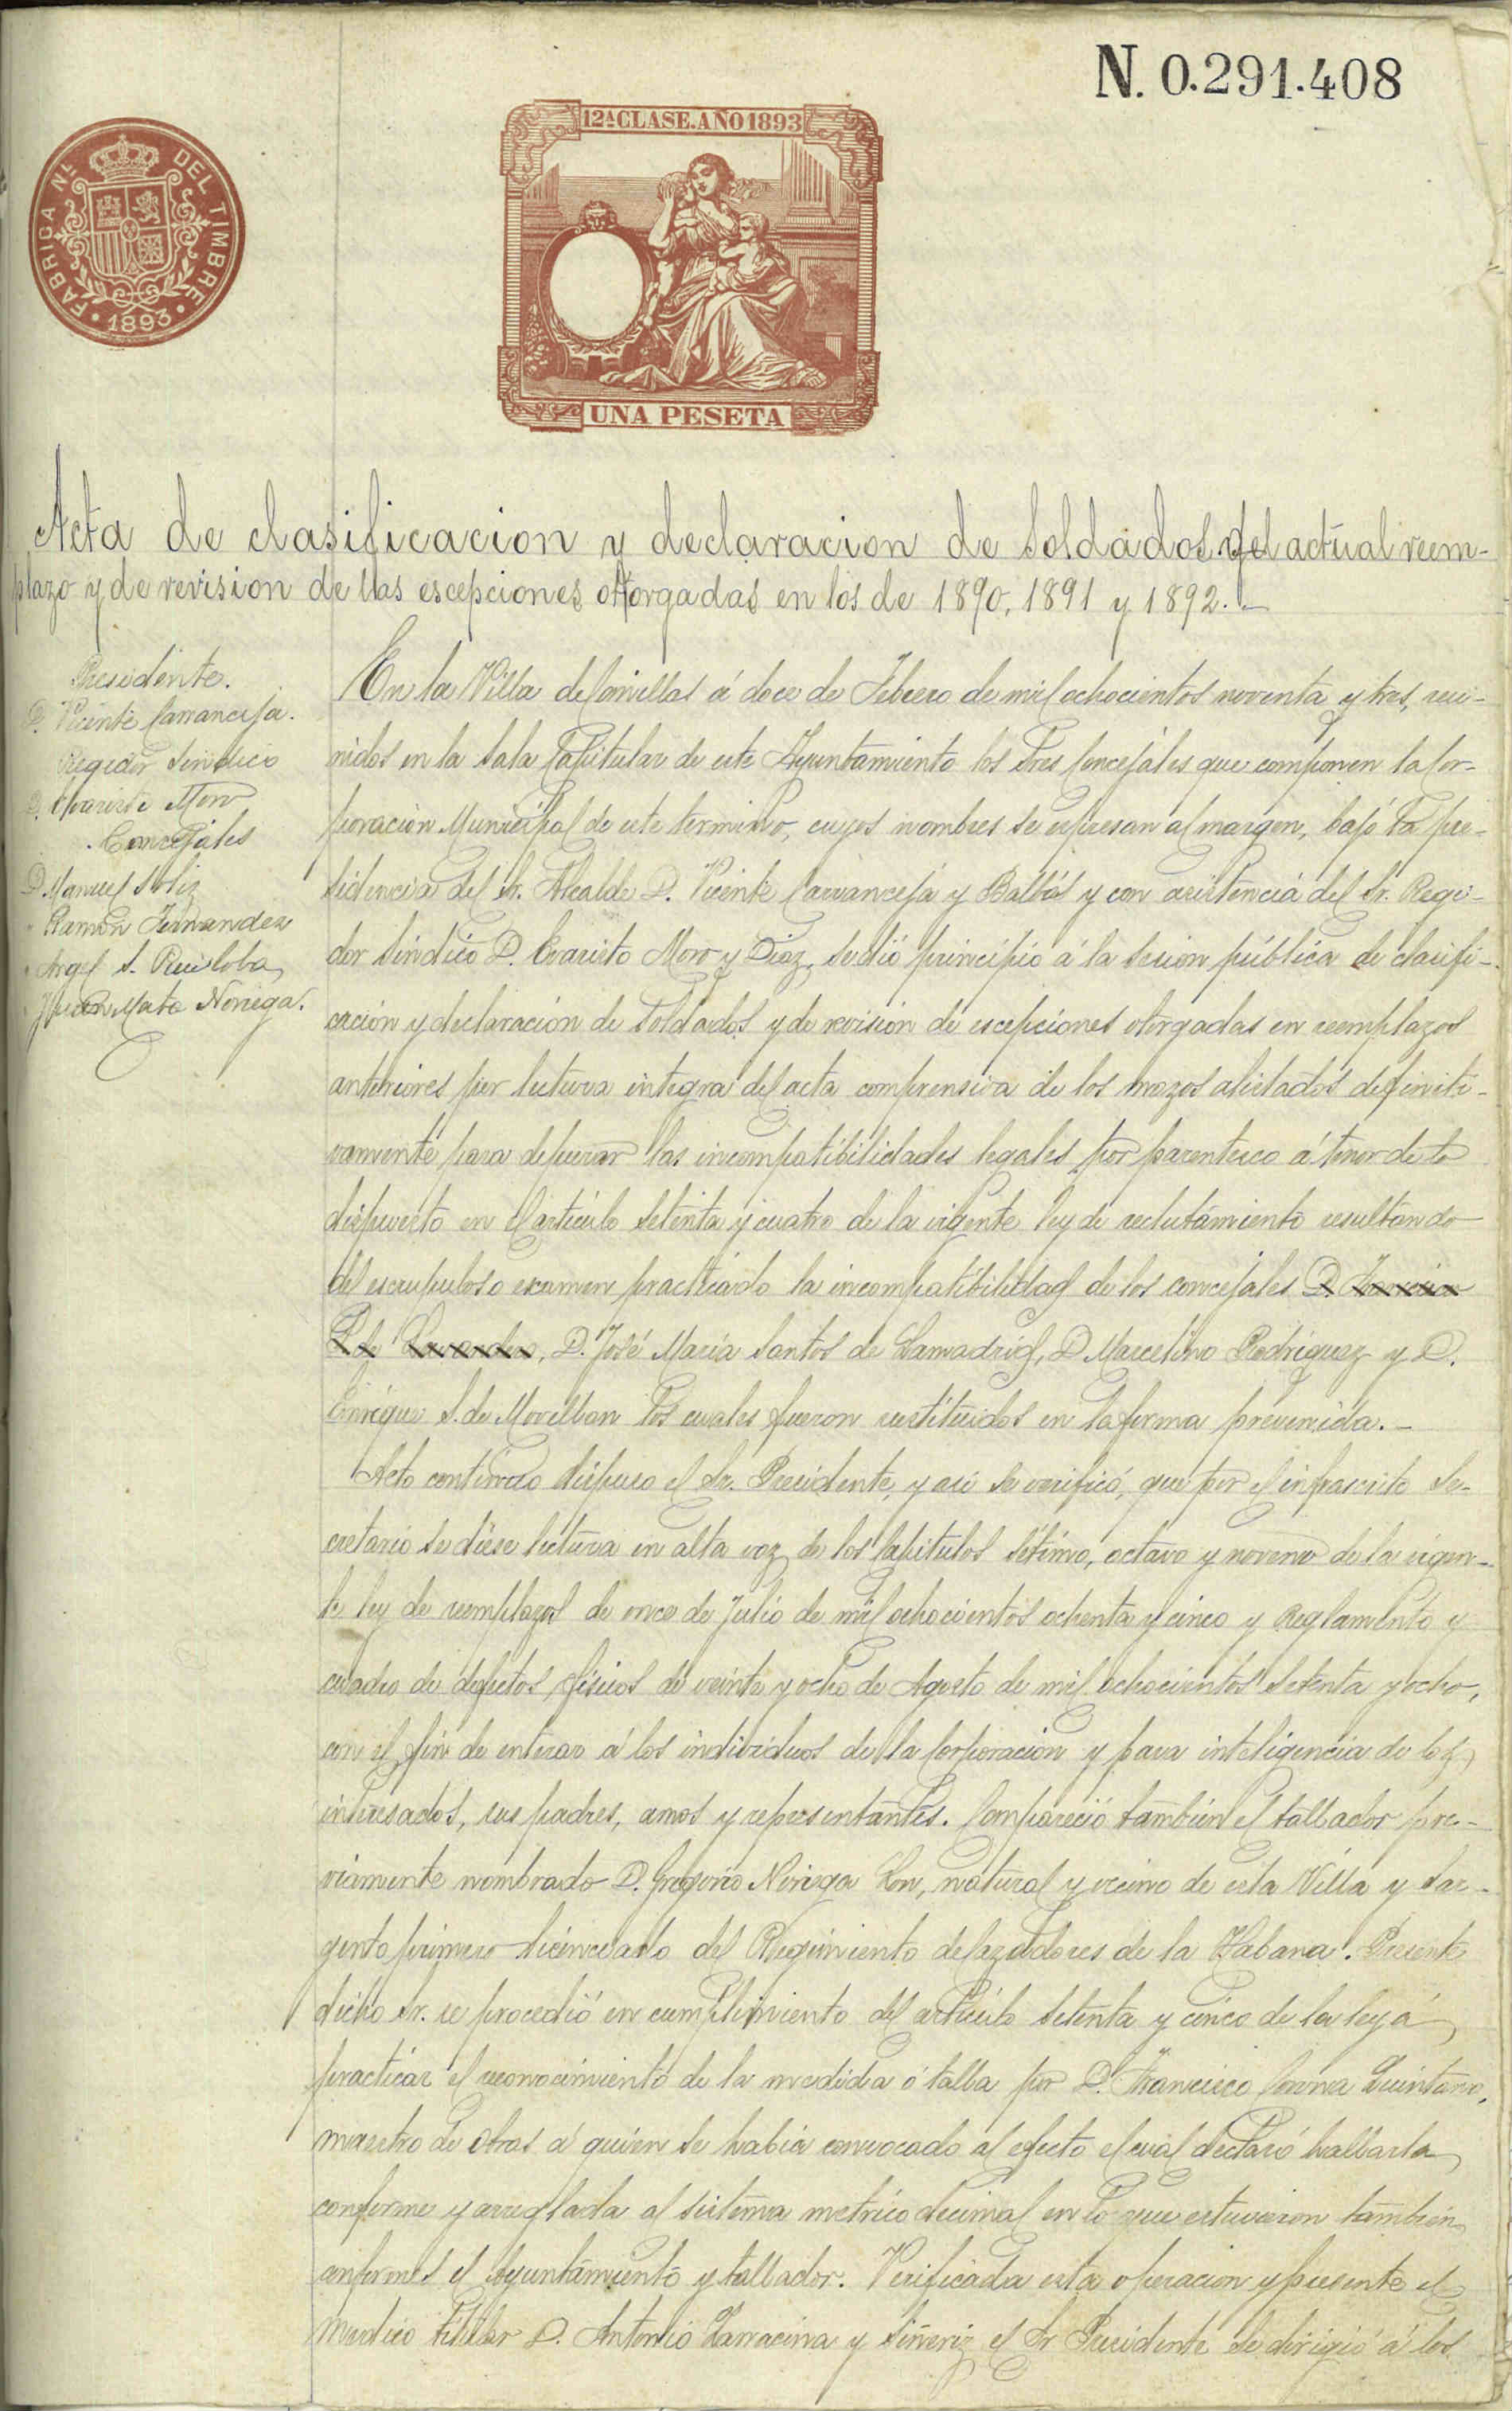 N. 0.291.408
FABRICA Nal. DEL TIMBRE
1893
12ª CLASE. AÑO 1893
UNA PESETA
Acta de clasificacion y declaracion de Soldados del actual reem-
plazo y de revision de las escepciones otorgadas en los de 1890, 1891 y 1892.-
Presidente.
D. Vicente Carranceja.
Regidor Sindico
D. Evaristo Moro
Concejales
D. Manuel Soliz
" Ramón Fernandez
" Angel S. Ruiloba,
" Juan Mata Noriega.
En la Villa de Comillas á doce de Febrero de mil ochocientos noventa y tres, reu-
nidos en la Sala Capitular de este Ayuntamiento los Sres Concejales que componen la Cor-
poración Municipal de este termino, cuyos nombres se expresan al margen, bajo la pre-
sidencia del Sr. Alcalde D. Vicente Carranceja y Balbás y con asistencia del Sr. Regi-
dor Sindico D. Evaristo Moro y Diaz, se dió principio á la sesion pública de clasifi-
cación y declaración de Soldados y de revisión de escepciones otorgadas en reemplazos
anteriores por lectura integra del acta comprensiva de los mozos alistados definiti-
vamente para depurar las incompatibilidades legales por parentesco á tenor de lo
dispuesto en el artículo setenta y cuatro de la vigente ley de reclutamiento resultando
del escrupuloso examen practicado la incompatibilidad de los concejales D.
D. José María Santos de Lamadrid, D. Marcelino Rodriguez y D.
Enrique S. de Movellan los cuales fueron sustituidos en la forma prevenida.-
Acto continuo dispuso el Sr. Presidente, y asi se verificó, que por el infrascrito Se-
cretario se diese lectura en alta voz de los Capitulos sétimo, octavo y noveno de la vigen-
te ley de reemplazos de once de Julio de mil ochocientos ochenta y cinco y Reglamento y
cuadro de defectos fisicos de veinte y ocho de Agosto de mil ochocientos setenta y ocho,
con el fin de enterar á los individuos de la Corporación y para inteligencia de los
interesados, sus padres, amos y representantes. Compareció tambien el tallador pre-
viamente nombrado D. Gregorio Noriega Lon, natural y vecino de esta Villa y Sar-
gento primero licenciado del Regimiento de Cazadores de la Habana. Presente
dicho Sr. se procedió en cumplimiento del artículo setenta y cinco de la ley á
practicar el reconocimiento de la medida ó talla por D. Francisco Corona Quintana,
maestro de obras á quien se habia convocado al efecto el cual declaró hallarla
conforme y arreglada al sistema metrico decimal en lo que estuvieron tambien
conformes el Ayuntamiento y tallador. Verificada esta operacion y presente el
Medico titular D. Antonio Larracina y Siñeriz el Sr Presidente se dirigió á los